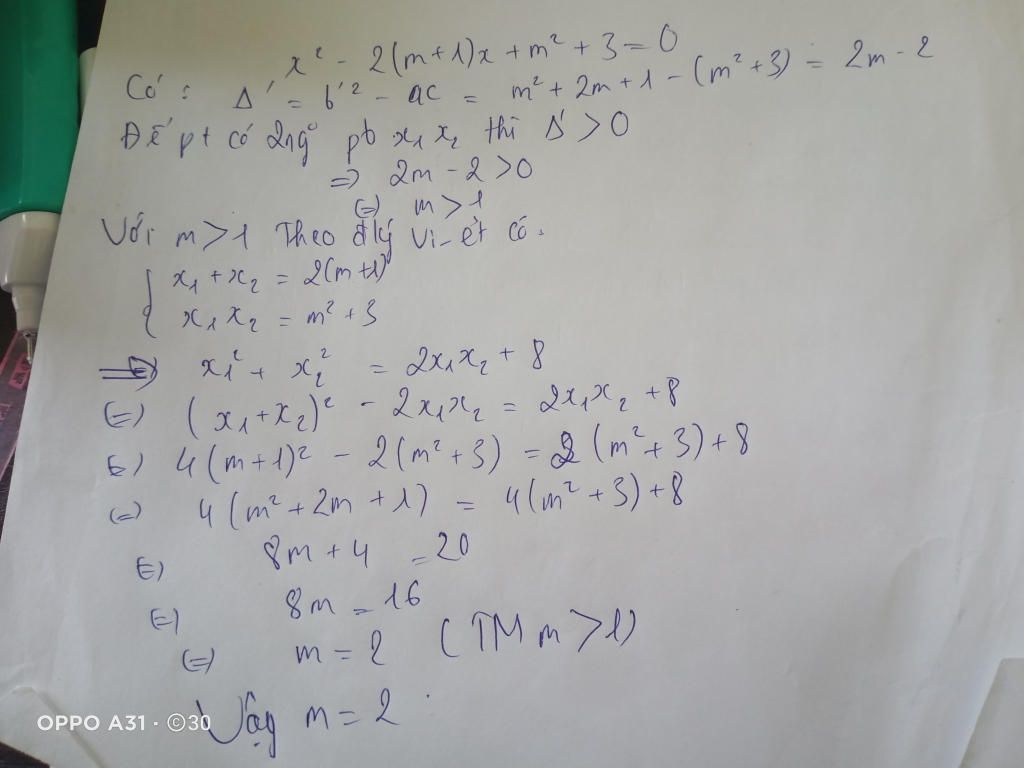 x² - 2(m+1)x + m² + 3 = 0
Có : Δ' = b'² - ac = m² + 2m + 1 - (m² + 3) = 2m - 2
Để pt có 2ng⁰ pb x₁ x₂ thì Δ' > 0
=> 2m - 2 > 0
(=) m > 1
Với m > 1 Theo đlý Vi-ét có.
{ x₁ + x₂ = 2(m+1)
x₁ x₂ = m² + 3
x₁² + x₂² = 2x₁x₂ + 8
(=) (x₁ + x₂)² - 2x₁x₂ = 2x₁x₂ + 8
(=) 4(m+1)² - 2(m² + 3) = 2(m² + 3) + 8
(=) 4(m² + 2m + 1) = 4(m² + 3) + 8
(=) 8m + 4 = 20
(=) 8m = 16
(=) m = 2 (TM m > 1)
Vậy m = 2
OPPO A31 · ©30